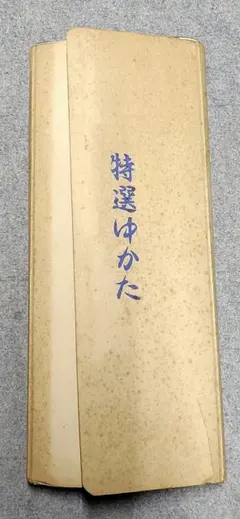 特選ゆかた